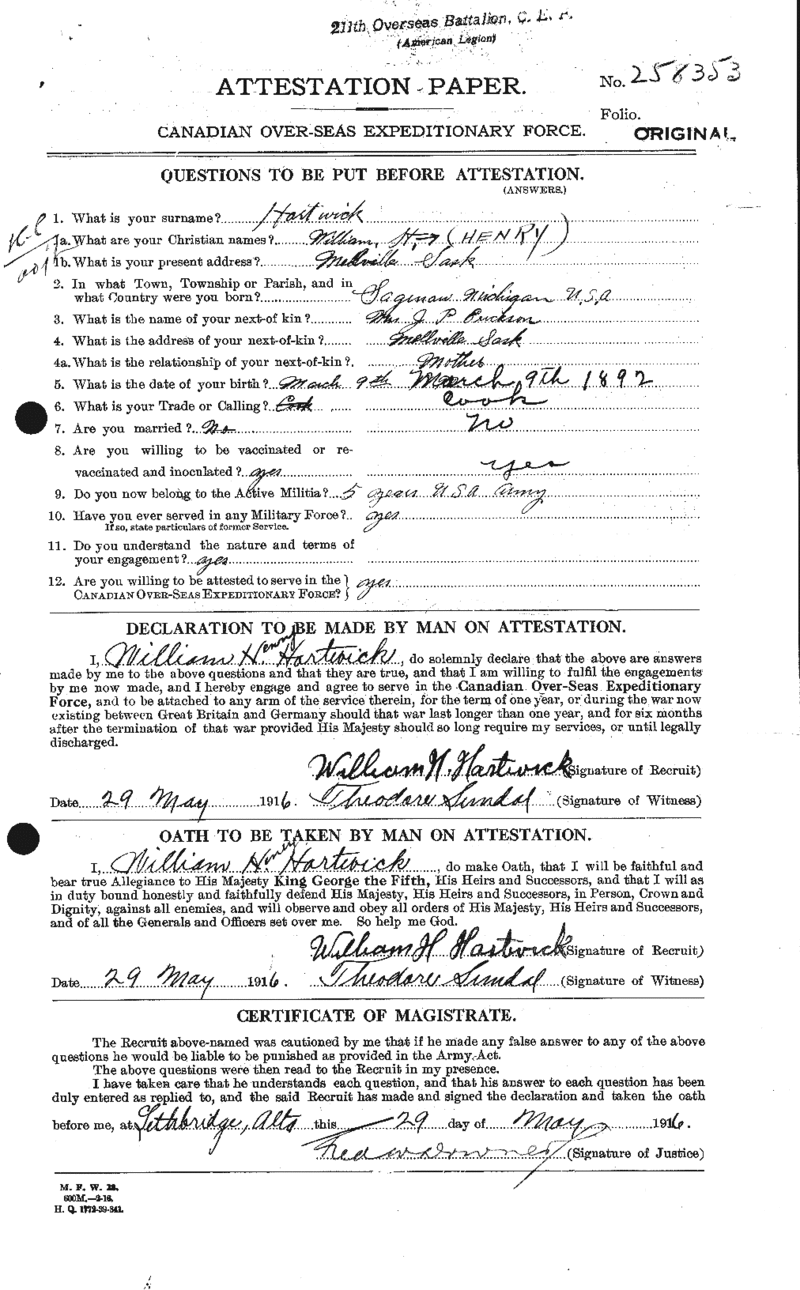 211th Overseas Battalion, C. E. F.
(American Legion)
ATTESTATION PAPER.
No. 258353
Folio.
CANADIAN OVER-SEAS EXPEDITIONARY FORCE.
ORIGINAL
QUESTIONS TO BE PUT BEFORE ATTESTATION.
(ANSWERS.)
1. What is your surname? Hartwick
1a. What are your Christian names? William, H. (HENRY)
1b. What is your present address? Mellville Sask
2. In what Town, Township or Parish, and in
what Country were you born? Saginaw Michigan U.S.A
3. What is the name of your next-of kin? Mrs J P
4. What is the address of your next-of-kin? Mellville Sask
4a. What is the relationship of your next-of-kin? Mother
5. What is the date of your birth? March 9th March, 9th 1892
6. What is your Trade or Calling? Cook cook
7. Are you married? No No
8. Are you willing to be vaccinated or re-
vaccinated and inoculated? yes yes
9. Do you now belong to the Active Militia? 5 years U.S.A Army
10. Have you ever served in any Military Force? yes
If so, state particulars of former Service.
11. Do you understand the nature and terms of
your engagement? yes
12. Are you willing to be attested to serve in the
CANADIAN OVER-SEAS EXPEDITIONARY FORCE? yes
DECLARATION TO BE MADE BY MAN ON ATTESTATION.
I, William Henry Hartwick, do solemnly declare that the above are answers
made by me to the above questions and that they are true, and that I am willing to fulfil the engagements
by me now made, and I hereby engage and agree to serve in the Canadian Over-Seas Expeditionary
Force, and to be attached to any arm of the service therein, for the term of one year, or during the war now
existing between Great Britain and Germany should that war last longer than one year, and for six months
after the termination of that war provided His Majesty should so long require my services, or until legally
discharged.
William H. Hartwick (Signature of Recruit)
Date 29 May 1916. Theodore Sundal (Signature of Witness)
OATH TO BE TAKEN BY MAN ON ATTESTATION.
I, William Henry Hartwick, do make Oath, that I will be faithful and
bear true Allegiance to His Majesty King George the Fifth, His Heirs and Successors, and that I will as
in duty bound honestly and faithfully defend His Majesty, His Heirs and Successors, in Person, Crown and
Dignity, against all enemies, and will observe and obey all orders of His Majesty, His Heirs and Successors,
and of all the Generals and Officers set over me. So help me God.
William H Hartwick (Signature of Recruit)
Date 29 May 1916. Theodore Sundal (Signature of Witness)
CERTIFICATE OF MAGISTRATE.
The Recruit above-named was cautioned by me that if he made any false answer to any of the above
questions he would be liable to be punished as provided in the Army Act.
The above questions were then read to the Recruit in my presence.
I have taken care that he understands each question, and that his answer to each question has been
duly entered as replied to, and the said Recruit has made and signed the declaration and taken the oath
before me, at Lethbridge, Alta this 29 day of May 1916.
Fred W Downey (Signature of Justice)
M. F. W. 23.
600M.—2-16.
H. Q. 1772-39-241.